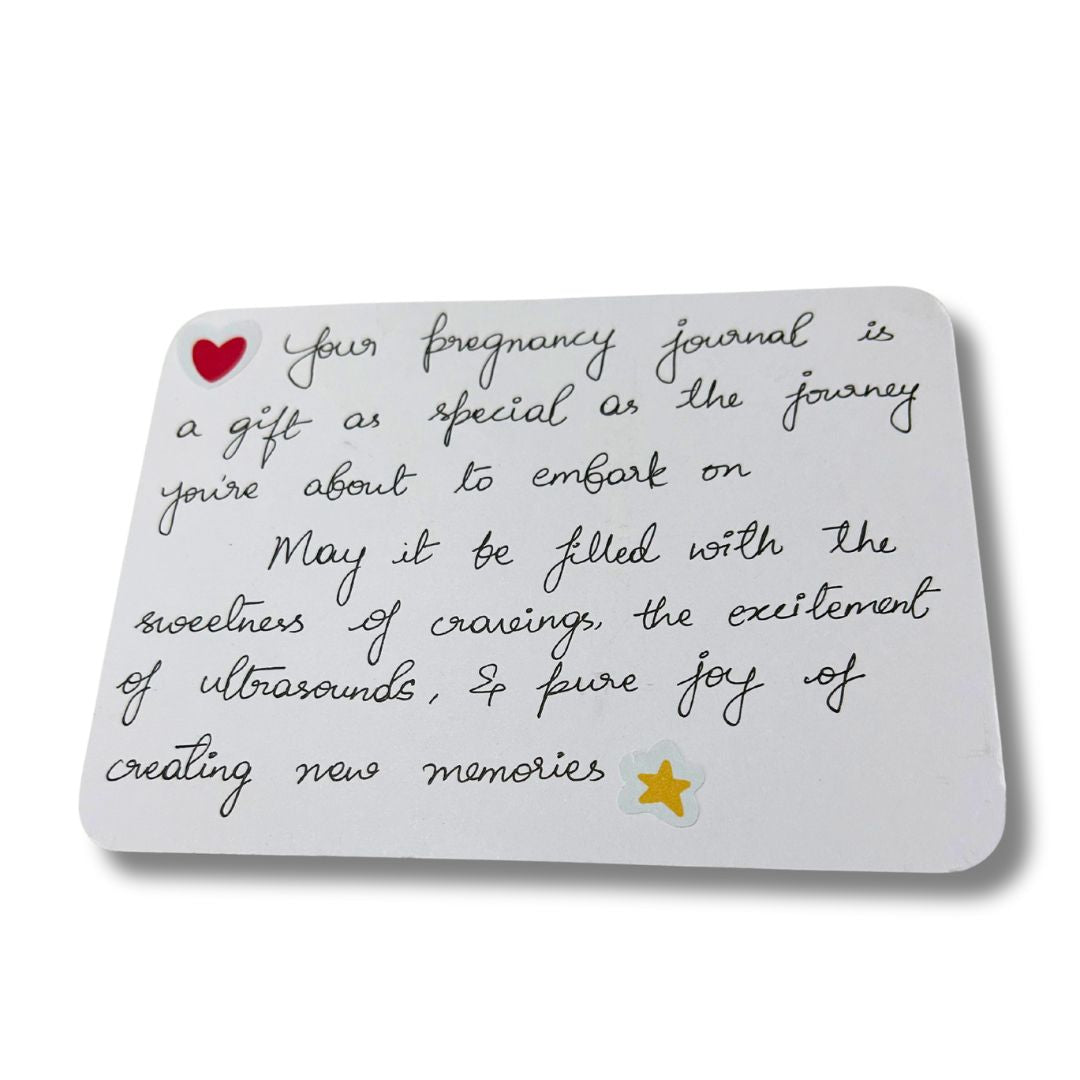 Your pregnancy journal is
a gift as special as the journey
you're about to embark on
May it be filled with the
sweetness of cravings, the excitement
of ultrasounds, & pure joy of
creating new memories